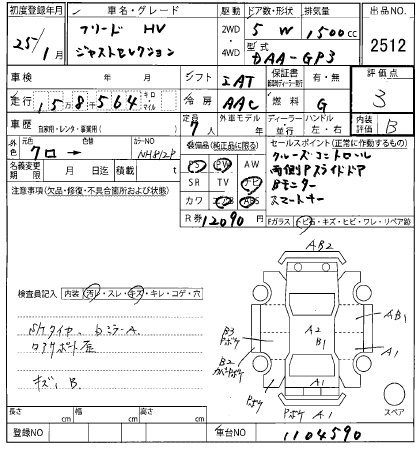 初度登録年月 車名・グレード 駆動 ドア数・形状 排気量 出品NO.
25/1月 フリード HV 2WD・4WD 5 W 1500cc 2512
ジャストセレクション 型式 DAA-GP3
車検 年 月 シフト IAT 保証書 有・無 評価点
走行 15万8千564 キロ マイル 冷房 AAC 燃料 G 3
車歴 自家用・レンタ・事業用( ) 定員 7人 外車モデル 年 ディーラー 並行 ハンドル 左・右 内装評価 B
外色 元色 色替 カラーNO 装備品(純正品に限る) セールスポイント(正常に作動するもの)
クロ → NH812P PS PW AW クルーズコントロール
名義変更期限 月 日迄 積載 t SR TV ナビ 両側Pスライドドア
注意事項(欠品・修復・不具合箇所および状態) カワ エアB ABS Bモニター
スマートキー
R券 12090円 Fガラス トビ石・キズ・ヒビ・ワレ・リペア跡
AB2
検査員記入 内装 汚レ・スレ・キズ・キレ・コゲ・穴
タイヤ、bミラーA.
キズ B.
B3 Pボケ
B2
Pボケ
A2
B1
AB1
A1
A1
Pボケ A1
スペア
長さ cm 幅 cm 高さ cm
登録NO 車台NO 1104590